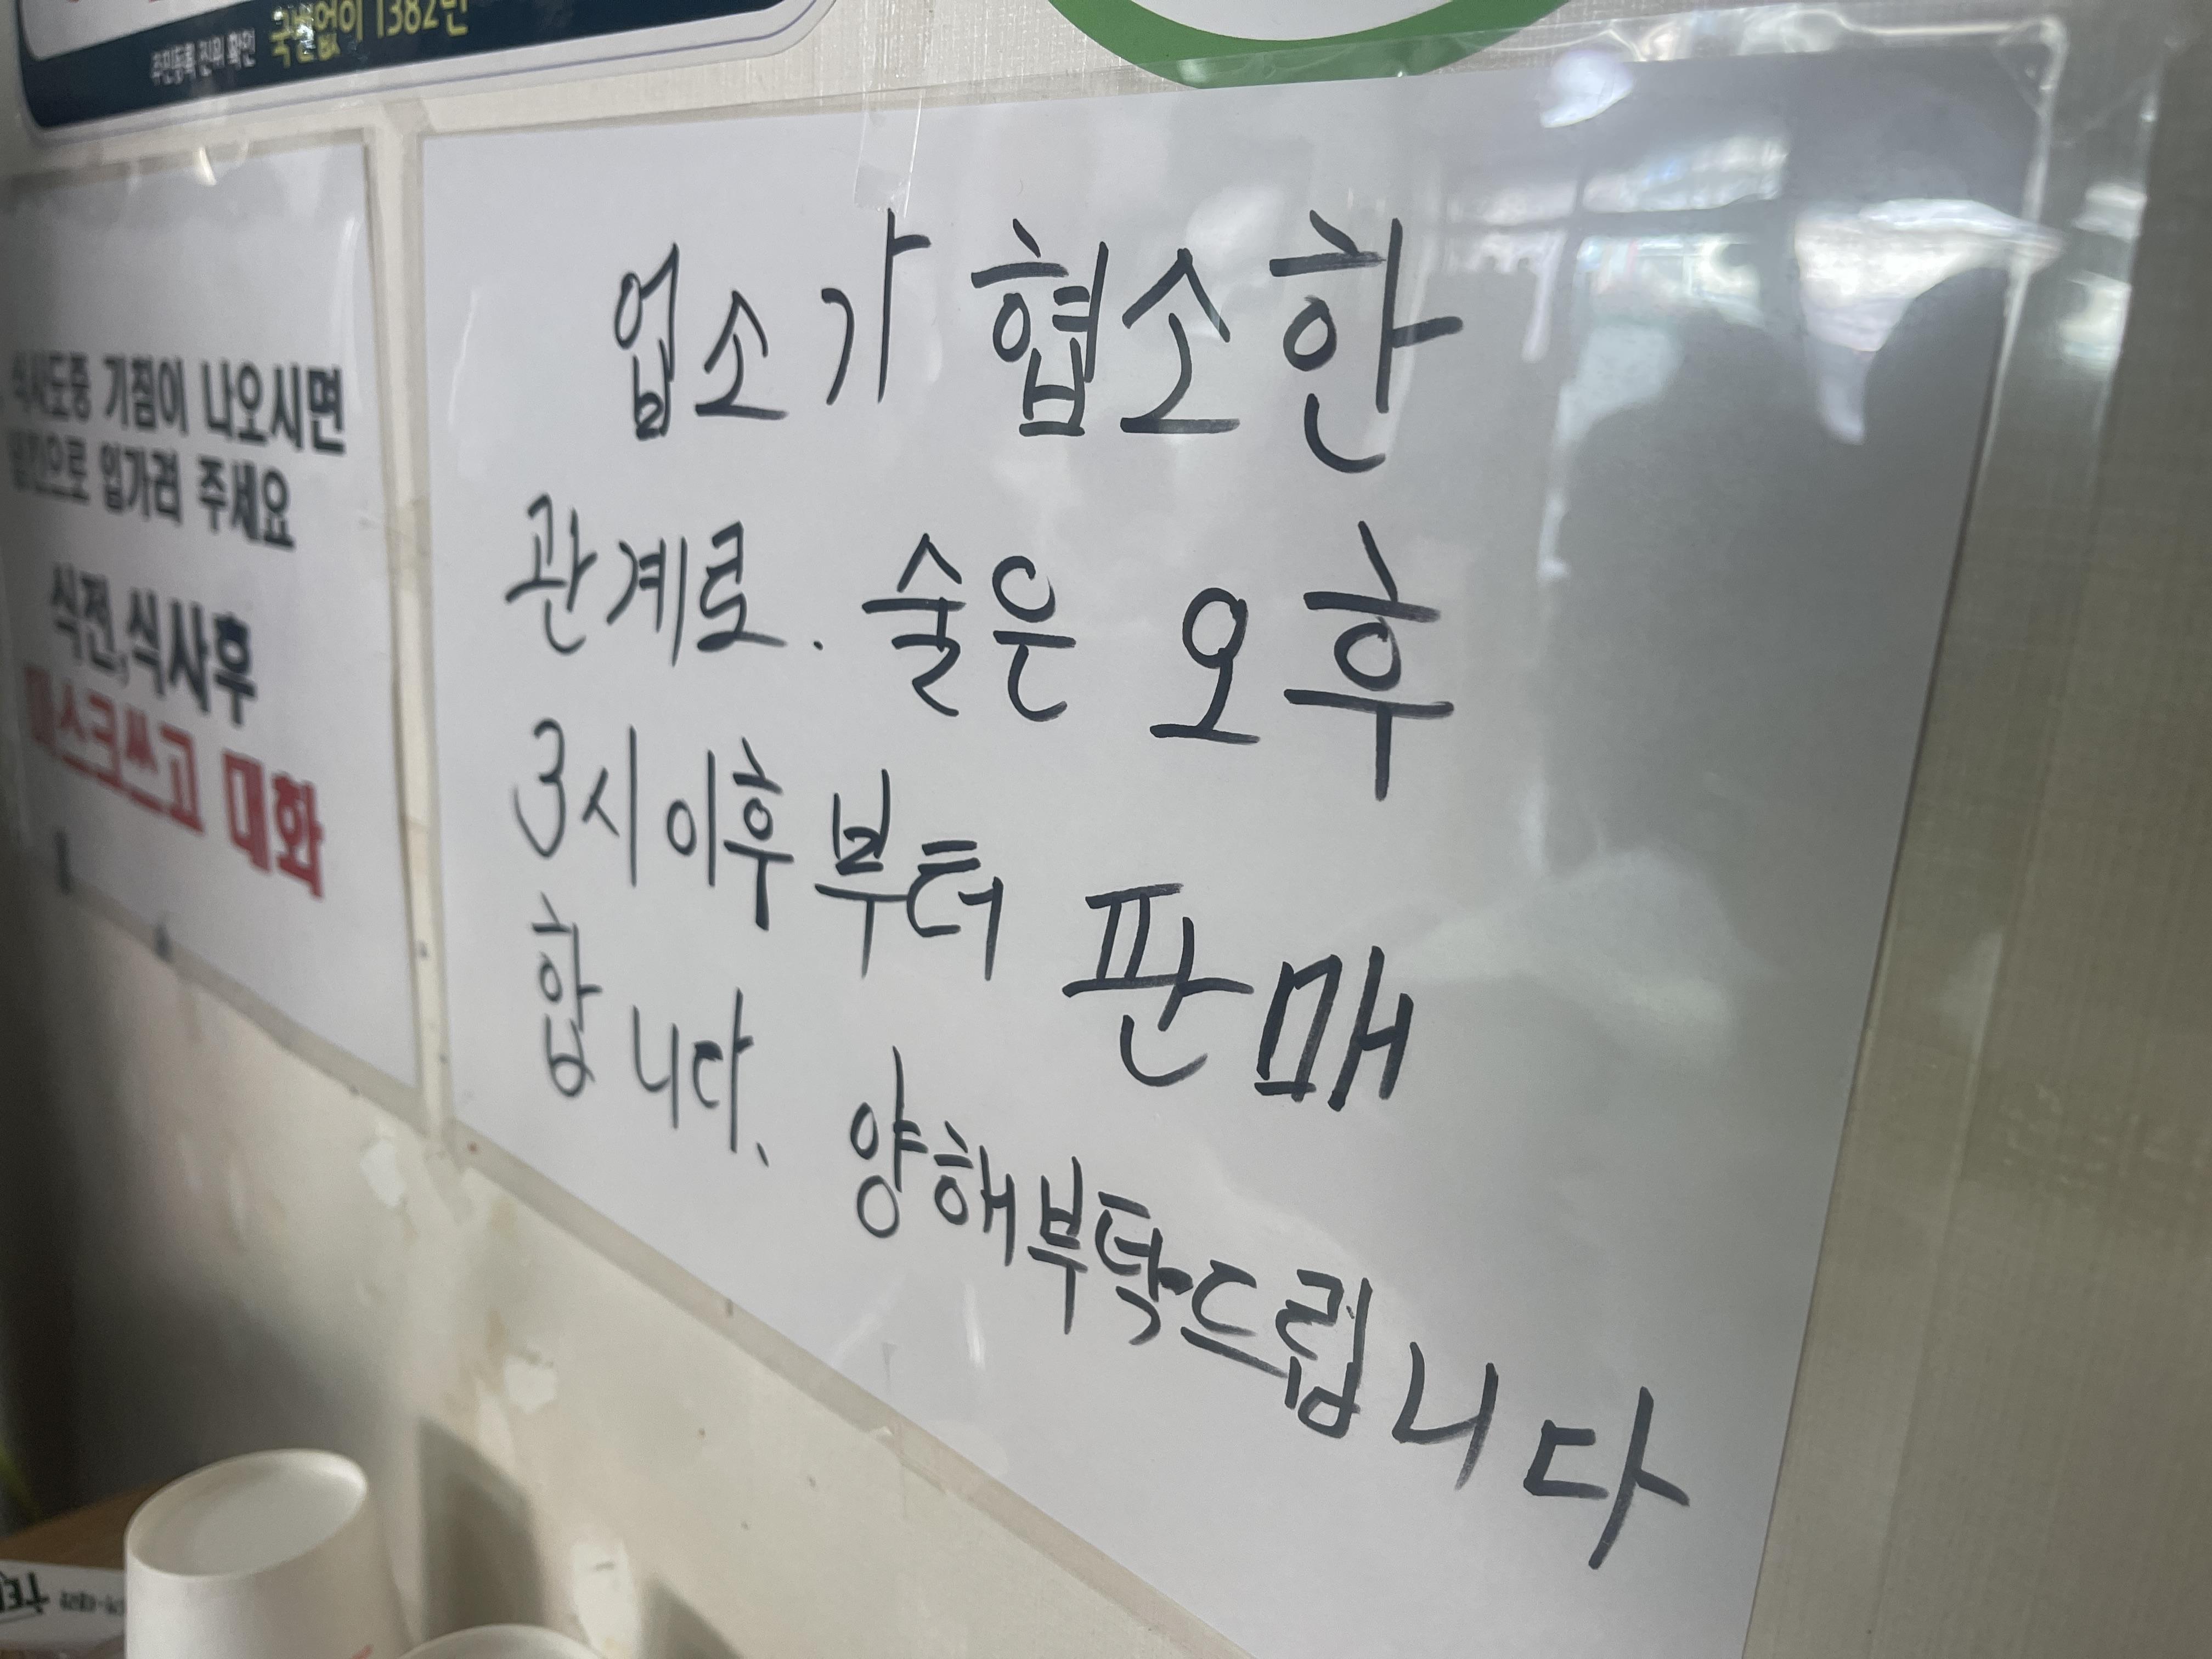 주민등록 진위 확인 국번없이 1382번
식사도중 기침이 나오시면
입가려 주세요
식전,식사후
마스크쓰고 대화
업소가 협소한
관계로. 술은 오후
3시이후부터 판매
합니다. 양해부탁드립니다